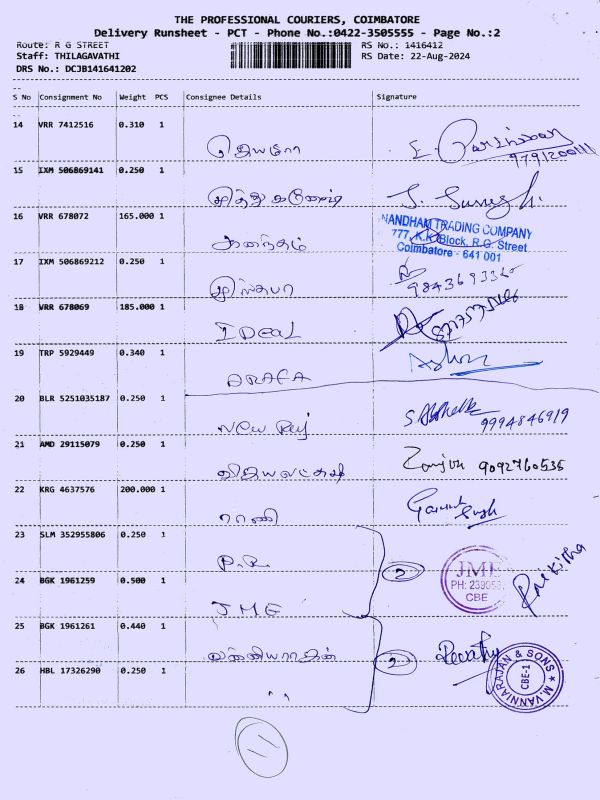 THE PROFESSIONAL COURIERS, COIMBATORE
Delivery Runsheet - PCT - Phone No.:0422-3505555 - Page No.:2
Route: R G STREET RS No.: 1416412
Staff: THILAGAVATHI RS Date: 22-Aug-2024
DRS No.: DCJB141641202
S No Consignment No Weight PCS Consignee Details Signature
14 VRR 7412516 0.310 1
15 IXM 506869141 0.250 1
J. Suresh.
16 VRR 678072 165.000 1
ஆனந்தம்
NANDHAM TRADING COMPANY
777, K.K. Block, R.G. Street
Coimbatore - 641 001
17 IXM 506869212 0.250 1
18 VRR 678069 185.000 1
IDEAL
19 TRP 5929449 0.340 1
ARAFA
20 BLR 5251035187 0.250 1
New Raj
9994846919
21 AMD 29115079 0.250 1
விஜயலட்சுமி
9092760535
22 KRG 4637576 200.000 1
ராணி
23 SLM 352955806 0.250 1
P.R.
24 BGK 1961259 0.500 1
2
JME
CBE
JME
25 BGK 1961261 0.440 1
வன்னியராஜன்
2
Revathy
26 HBL 17326290 0.250 1
" "
M. VANNIARAJAN & SONS
CBE-1